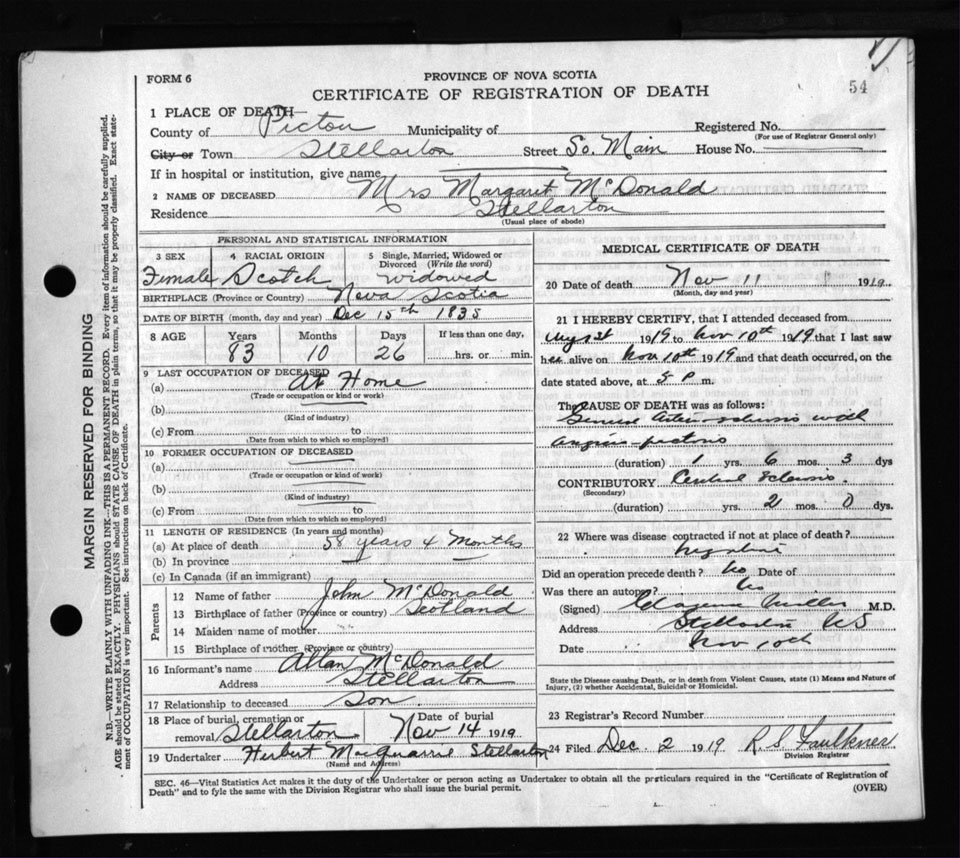 FORM 6
PROVINCE OF NOVA SCOTIA
CERTIFICATE OF REGISTRATION OF DEATH
54
1 PLACE OF DEATH
County of Pictou Municipality of Registered No.
(For use of Registrar General only)
City or Town Stellarton Street So. Main House No.
If in hospital or institution, give name
2 NAME OF DECEASED Mrs Margaret McDonald
Residence Stellarton
(Usual place of abode)
MARGIN RESERVED FOR BINDING
N.B.—WRITE PLAINLY WITH UNFADING INK—THIS IS A PERMANENT RECORD. Every item of information should be carefully supplied.
AGE should be stated EXACTLY. PHYSICIANS should STATE CAUSE OF DEATH in plain terms, so that it may be properly classified. Exact state-
ment of OCCUPATION is very important. See instructions on back of Certificate.
PERSONAL AND STATISTICAL INFORMATION
3 SEX Female
4 RACIAL ORIGIN Scotch
5 Single, Married, Widowed or
Divorced (Write the word)
widowed
BIRTHPLACE (Province or Country) Nova Scotia
DATE OF BIRTH (month, day and year) Dec 15th 1835
8 AGE Years Months Days If less than one day,
83 10 26 hrs. or min.
9 LAST OCCUPATION OF DECEASED
(a) At Home
(Trade or occupation or kind or work)
(b)
(Kind of industry)
(c) From to
(Date from which to which so employed)
10 FORMER OCCUPATION OF DECEASED
(a)
(Trade or occupation or kind of work)
(b)
(Kind of industry)
(c) From to
(Date from which to which so employed)
11 LENGTH OF RESIDENCE (In years and months)
(a) At place of death 58 years 4 Months
(b) In province
(c) In Canada (if an immigrant)
Parents
12 Name of father John McDonald
13 Birthplace of father (Province or country) Scotland
14 Maiden name of mother
15 Birthplace of mother (Province or country)
16 Informant's name Allan McDonald
Address Stellarton
17 Relationship to deceased Son
18 Place of burial, cremation or
removal Stellarton
Date of burial
Nov 14 1919
19 Undertaker Herbert MacQuarrie Stellarton
(Name and Address)
MEDICAL CERTIFICATE OF DEATH
20 Date of death Nov 11 1919
(Month, day and year)
21 I HEREBY CERTIFY, that I attended deceased from
1919 to Nov 10th 1919 that I last saw
her alive on Nov 10th 1919 and that death occurred, on the
date stated above, at 5 P m.
The CAUSE OF DEATH was as follows:
General Arterio-sclerosis with
angina pectoris
(duration) 1 yrs. 6 mos. 3 dys
CONTRIBUTORY
(Secondary)
(duration) yrs. 2 mos. 0 dys.
22 Where was disease contracted if not at place of death?
Did an operation precede death? No Date of
Was there an autopsy? No
(Signed) Clarence Miller M.D.
Address Stellarton NS
Date Nov
State the Disease causing Death, or in death from Violent Causes, state (1) Means and Nature of
Injury, (2) whether Accidental, Suicidal or Homicidal.
23 Registrar's Record Number
24 Filed Dec. 2 1919 R S Faulkner
Division Registrar
SEC. 46—Vital Statistics Act makes it the duty of the Undertaker or person acting as Undertaker to obtain all the particulars required in the "Certificate of Registration of
Death" and to fyle the same with the Division Registrar who shall issue the burial permit.
(OVER)